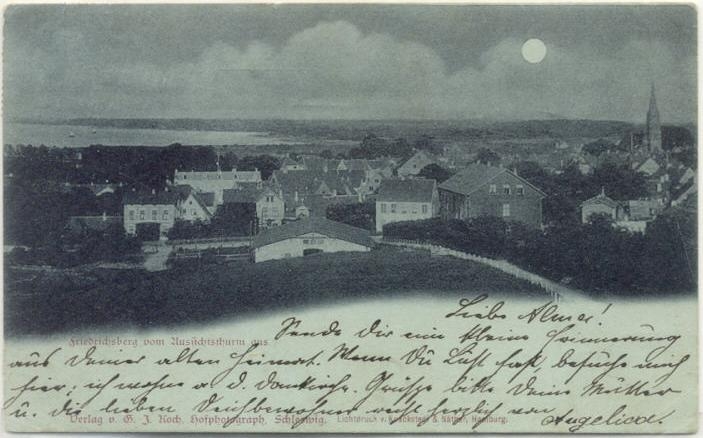 Liebe Alma!
Friedrichsberg vom Aussichtsthurm aus.
Sende Dir eine kleine Erinnerung
aus Deiner alten Heimat. Wenn Du Lust hast, besuche mich
hier; ich wohne a. d. Grüsse bitte Deine Mutter
u. die lieben recht herzlich von
Angelica.
Verlag v. G. J. Koch, Hofphotograph, Schleswig. Lichtdruck v. Knackstedt & Näther, Hamburg.